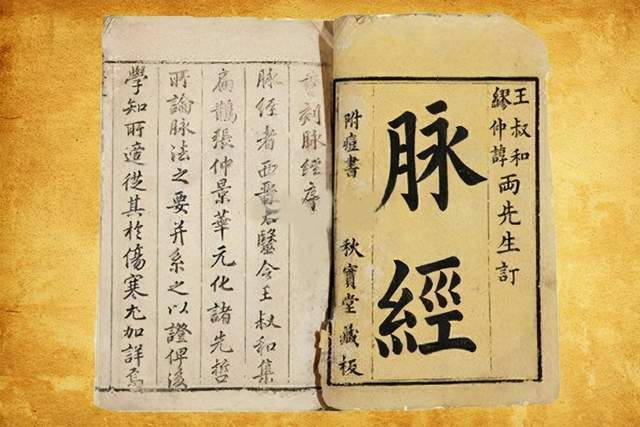 王叔和
繆仲諄
両先生訂
脉經
附痘書 秋寶堂藏板
刻脉經序
脉經者西晋醫令王叔和集
扁鵲張仲景華元化諸先哲
所論脉法之要并系之以證俾後
學知所適從其於傷寒尤加詳焉